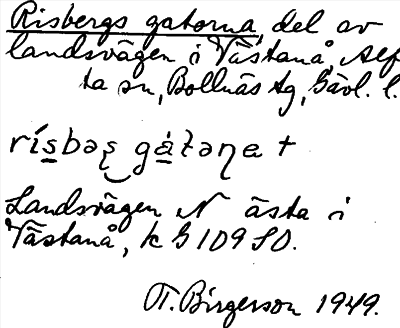 Risbergs gatorna, del av
landsvägen i Västanå, Alf
ta sn, Bollnäs tg, Gävl. l.
rísbəʂ gátəɳa +
Landsvägen N ästa i
Västanå, k G 109 SO.
T. Birgerson 1949.